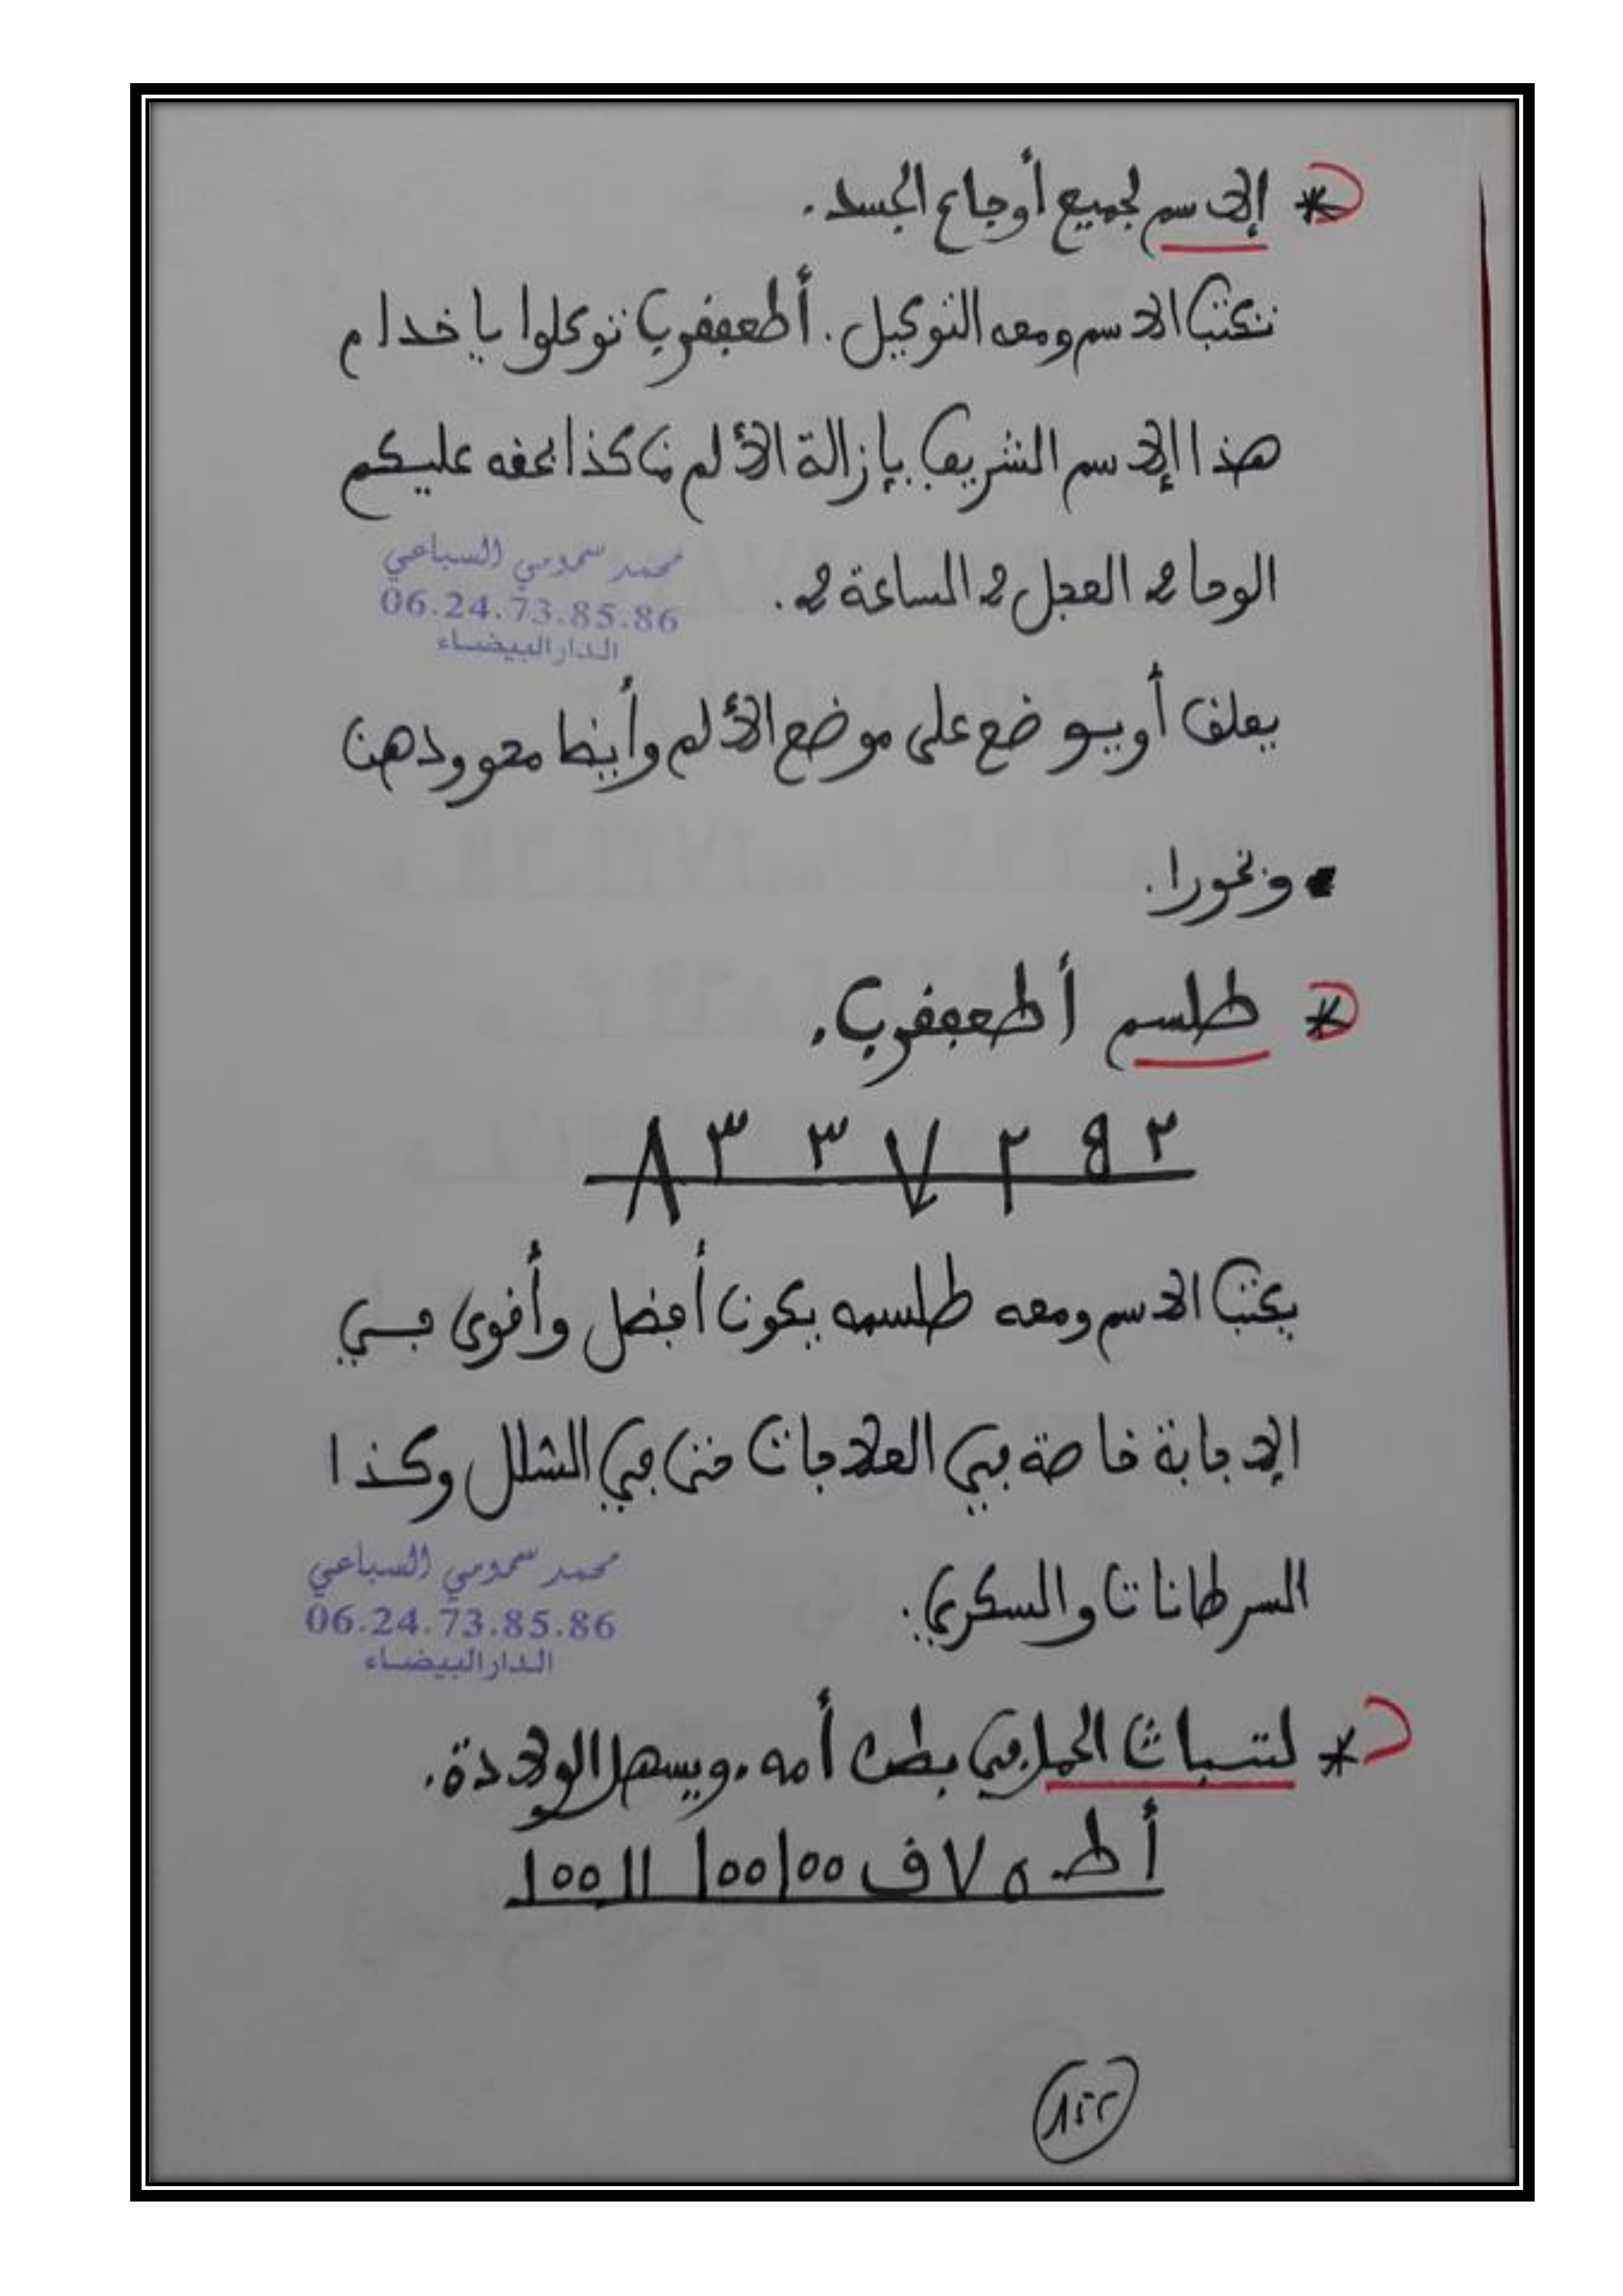 * الإسم لجميع أوجاع الجسد.
تكتب الاسم ومعه التوكيل. أطعيفرب توكلوا يا خدام
هذا الإسم الشريف بإزالة الألم من كذا بحقه عليكم
الوحا 2 العجل 2 الساعة 2.
محمد سمومي السباعي
06.24.73.85.86
الدار البيضاء
يعلق أو يوضع على موضع الألم وأيضا محو ودهن
وبخورا.
* طلسم
٢ ٢ ٧ ٣ ٣ ٨
يكتب الاسم ومعه طلسمه يكون أفضل وأقوى في
الإجابة خاصة في العلاجات حتى في الشلل وكذا
السرطانات والسكري.
محمد سمومي السباعي
06.24.73.85.86
الدار البيضاء
* لتبات الحمل في بطن أمه. ويسهل الولادة.
أ ط ٥ ٧ ف ١٥٥١٥٥ ١١ ١٥٥